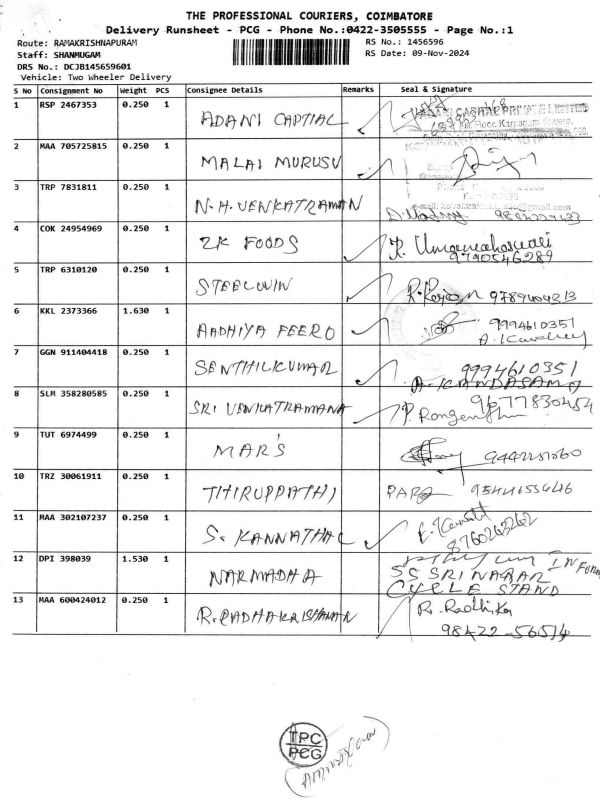 THE PROFESSIONAL COURIERS, COIMBATORE
Delivery Runsheet - PCG - Phone No.:0422-3505555 - Page No.:1
Route: RAMAKRISHNAPURAM RS No.: 1456596
Staff: SHANMUGAM RS Date: 09-Nov-2024
DRS No.: DCJB145659601
Vehicle: Two Wheeler Delivery
S No Consignment No Weight PCS Consignee Details Remarks Seal & Signature
1 RSP 2467353 0.250 1 ADANI CAPTIAL
2 MAA 705725815 0.250 1 MALAI MURUSU
3 TRP 7831811 0.250 1 N.H.VENKATRAMAN
4 COK 24954969 0.250 1 2K FOODS 9790546289
5 TRP 6310120 0.250 1 STEELWIN
6 KKL 2373366 1.630 1 AADHIYA FEERO 9994610351
7 GGN 911404418 0.250 1 SENTHILKUMAR 9994610351
A. KANDASAMY
8 SLM 358280585 0.250 1 SRI VENKATRAMANA 9677830454
9 TUT 6974499 0.250 1 MAR'S
10 TRZ 30061911 0.250 1 TIHIRUPPATHI
11 MAA 302107237 0.250 1 S. KANNATHAL 8760243262
12 DPI 398039 1.530 1 NARMADHA
SS SRI NAGAR
CYCLE STAND
13 MAA 600424012 0.250 1 R.RADHAKRISHANAN R. Radhika
98422-56514
TPC
PCG